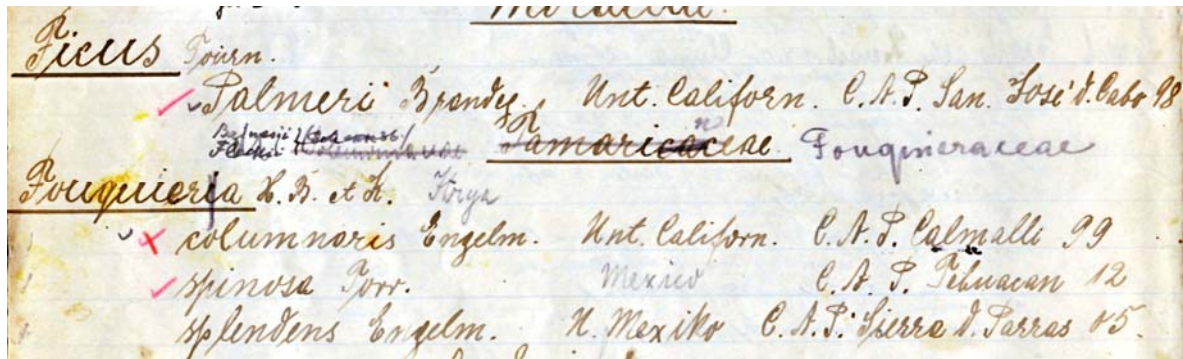 Moraceae.
Ficus Tourn.
Palmeri Brandeg. Unt. Californ. C. A. P. San. José d. Cabo 98
Tamaricaceae. Fouquieraceae
Fouquieria H. B. et K.
columnaris Engelm. Unt. Californ. C. A. P. Calmalli 99
spinosa Torr. Mexico C. A. P. Tehuacan 12
splendens Engelm. N. Mexiko C. A. P. Sierra d. Parras 05.